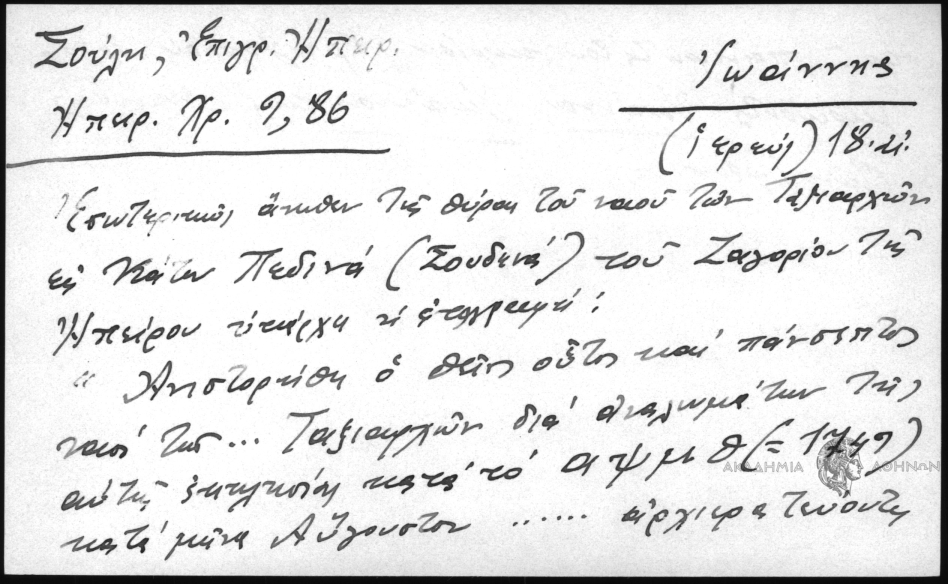 Σούλη, Ἐπιγρ. Ἠπειρ.
Ἠπειρ. Χρ. 9, 86
Ἰωάννης
(ἱερεύς) 18. αἰ.
Ἐσωτερικῶς ἄνωθεν τῆς θύρας τοῦ ναοῦ τῶν Ταξιαρχῶν
εἰς Κάτω Πεδινά (Σουδενά) τοῦ Ζαγορίου τῆς
Ἠπείρου ὑπάρχει ἡ ἐπιγραφή:
"Ἀνιστορήθη ὁ θεῖος οὗτος καί πάνσεπτος
ναός τῶν... Ταξιαρχῶν διά ἀναλωμάτων τῆς
αὐτῆς ἐκκλησίας κατά τό αψμθ (= 1749)
κατά μῆνα Αὔγουστον ...... ἀρχιερατεύοντος
ΑΚΑΔΗΜΙΑ ΑΘΗΝΩΝ